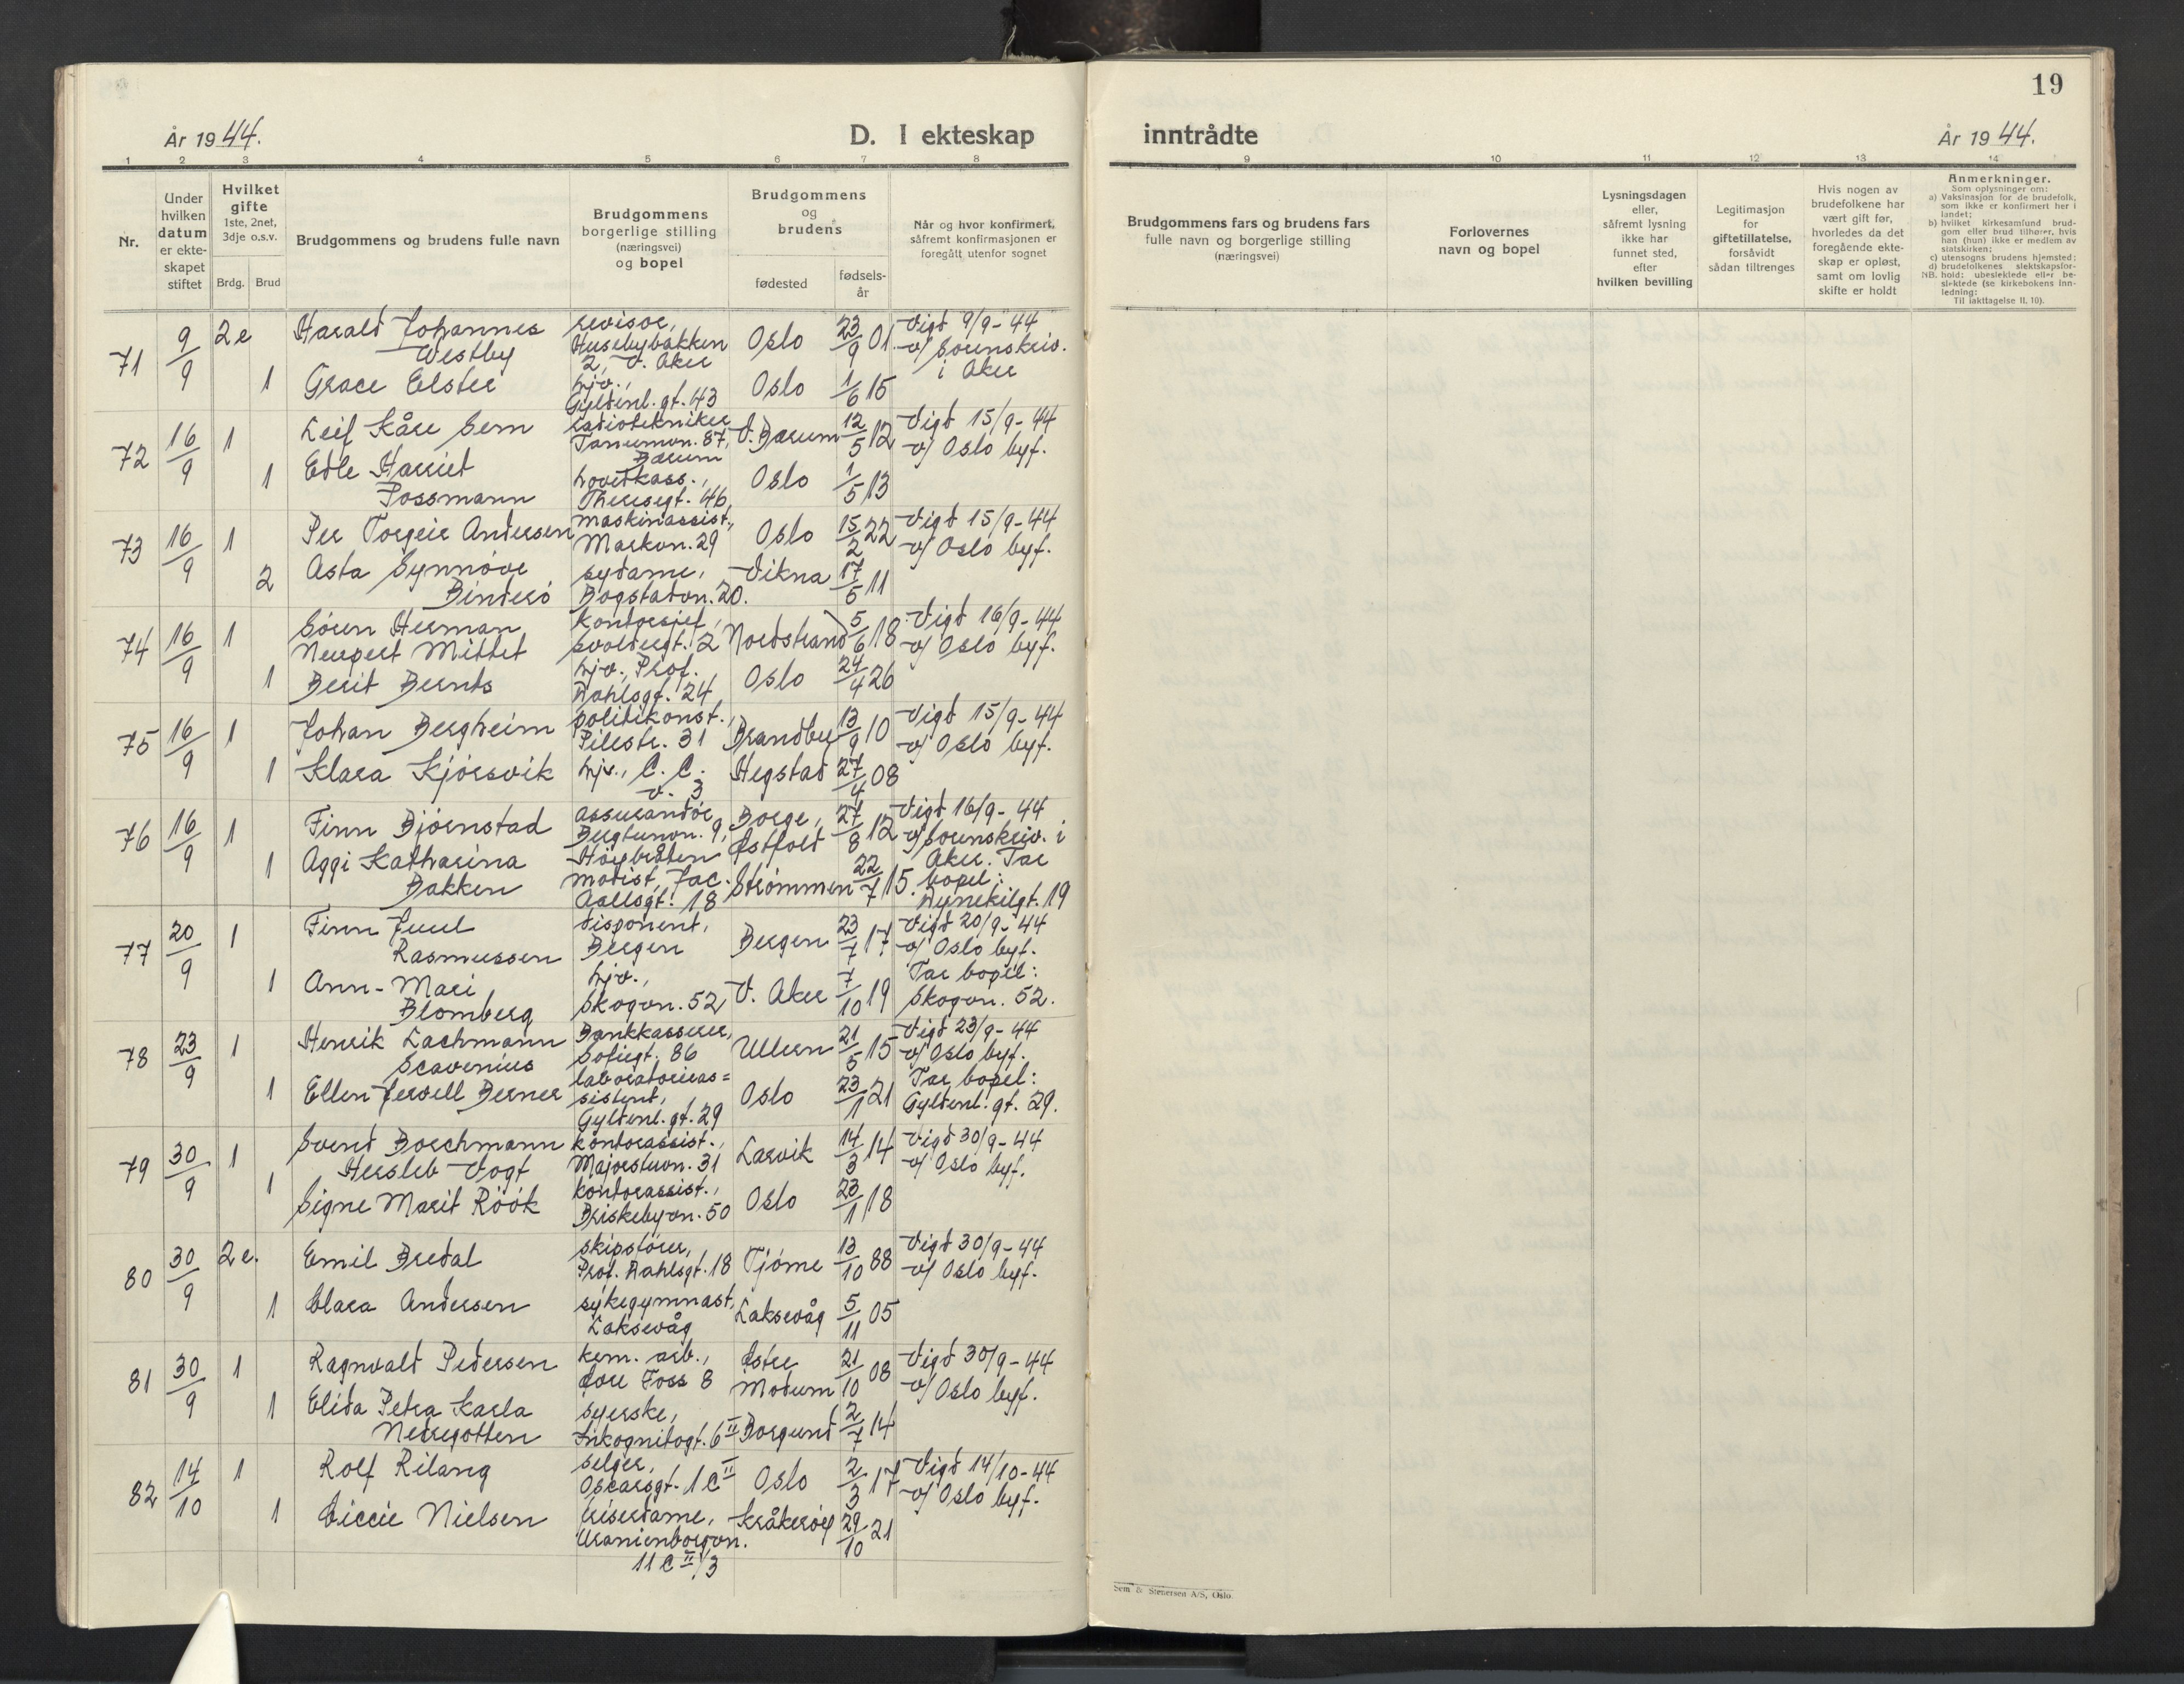 19
År 1944.
D. I ekteskap
inntrådte
År 1944.
1 2 3 4 5 6 7 8
9 10 11 12 13 14
Nr.
Under
hvilken
datum
er ekte-
skapet
stiftet
Hvilket
gifte
1ste, 2net,
3dje o.s.v.
Brdg. Brud
Brudgommens og brudens fulle navn
Brudgommens
borgerlige stilling
(næringsvei)
og bopel
Brudgommens
og
brudens
fødested
fødsels-
år
Når og hvor konfirmert,
såfremt konfirmasjonen er
foregått utenfor sognet
Brudgommens fars og brudens fars
fulle navn og borgerlige stilling
(næringsvei)
Forlovernes
navn og bopel
Lysningsdagen
eller,
såfremt lysning
ikke har
funnet sted,
efter
hvilken bevilling
Legitimasjon
for
giftetillatelse,
forsåvidt
sådan tiltrenges
Hvis nogen av
brudefolkene har
vært gift før,
hvorledes da det
foregående ekte-
skap er opløst,
samt om lovlig
skifte er holdt
Anmerkninger.
Som oplysninger om:
a) Vaksinasjon for de brudefolk,
som ikke er konfirmert her i
landet;
b) hvilket kirkesamfund brud-
gom eller brud tilhører, hvis
han (hun) ikke er medlem av
statskirken;
c) utensogns brudens hjemsted;
d) brudefolkenes slektskapsfor-
NB. hold: ubeslektede eller be-
slektede (se kirkebokens inn-
ledning:
Til iakttagelse II, 10).
71 9/9 2e Harald Johannes
Westby
revisor,
Husebybakken
2, V. Aker
Oslo 23/9 01
Vigd 9/9-44
v/ Sorenskriv.
i Aker
1 Grace Elster
hjv.,
Gyldenl. gt. 43
Oslo 1/6 15
72 16/9 1 Leif Kåre Sem
radiotekniker
Tanumvn. 87,
Bærum
V. Bærum 12/5 12
Vigd 15/9-44
v/ Oslo byf.
1 Edle Harriet
Possmann
hovedkass.,
Theresegt. 46
Oslo 1/5 13
73 16/9 1 Per Torgeir Andersen
maskinassist.,
Markvn. 29
Oslo 15/2 22
Vigd 15/9-44
v/ Oslo byf.
2 Asta Synnöve
Binderö
sydame,
Bogstadvn. 20.
Vikna 17/5 11
74 16/9 1 Sören Herman
Neupert Mittet
kontorsjef,
Svoldergt. 2
Nordstrand 5/6 18
Vigd 16/9-44
v/ Oslo byf.
1 Berit Bernts
hjv., Prof.
Dahlsgt. 24
Oslo 24/4 26
75 16/9 1 Johan Bergheim
politikonst.,
Pilestr. 31
Brandbu 13/9 10
Vigd 15/9-44
v/ Oslo byf.
1 Klara Kjörsvik
hjv., C. C.
v. 3
Hegstad 27/4 08
76 16/9 1 Finn Björnstad
assurandör
Bergtunvn. 9,
Höybråten
Borge,
Østfold 27/8 12
Vigd 16/9-44
v/Sorenskriv. i
Aker. Tar
bopel:
Dynekilgt. 19
1 Aggi Katharina
Bakken
modist, Jac.
Aallsgt. 18
Strömmen 22/7 15.
77 20/9 1 Finn Juul
Rasmussen
disponent,
Bergen
Bergen 23/7 17
Vigd 20/9-44
v/ Oslo byf.
Tar bopel:
Skogvn. 52.
1 Ann-Mari
Blomberg
hjv.,
Skogvn. 52
V. Aker 7/10 19
78 23/9 1 Henrik Lachmann
Scavenius
Bankkasserer,
Sofiegt. 86
Ullern 21/5 15
Vigd 23/9-44
v/ Oslo byf.
Tar bopel:
Gyldenl. gt. 29.
1 Ellen Jervell Berner
laboratorieas=
sistent,
Gyldenl. gt. 29
Oslo 23/1 21
79 30/9 1 Svend Borchmann
Hersleb Vogt
kontorassist.,
Majorstuvn. 31
Larvik 14/3 14
Vigd 30/9-44
v/ Oslo byf.
1 Signe Marit Röök
kontorassist.,
Briskebyvn. 50
Oslo 23/1 18
80 30/9 2e. Emil Bredal
skipsförer,
Prof. Dahlsgt. 18
Tjöme 13/10 88
Vigd 30/9-44
v/ Oslo byf.
1 Clara Andersen
sykegymnast,
Laksevåg
Laksevåg 5/11 05
81 30/9 1 Ragnvald Pedersen
kem. arb.,
Övre Foss 8
Østre
Modum 21/10 08
Vigd 30/9-44
v/ Oslo byf.
1 Elida Petra Karla
Nedregotten
syerske,
Inkognitogt. 6 II
Borgund 2/7 14
82 14/10 1 Rolf Rilang
selger,
Oscarsgt. 1 C II
Oslo 2/3 17
Vigd 14/10-44
v/ Oslo byf.
1 Siccie Nielsen
friserdame,
Uranienborgvn.
11 C II/3
Kråkeröy 29/10 21
Sem & Stenersen A/S, Oslo.